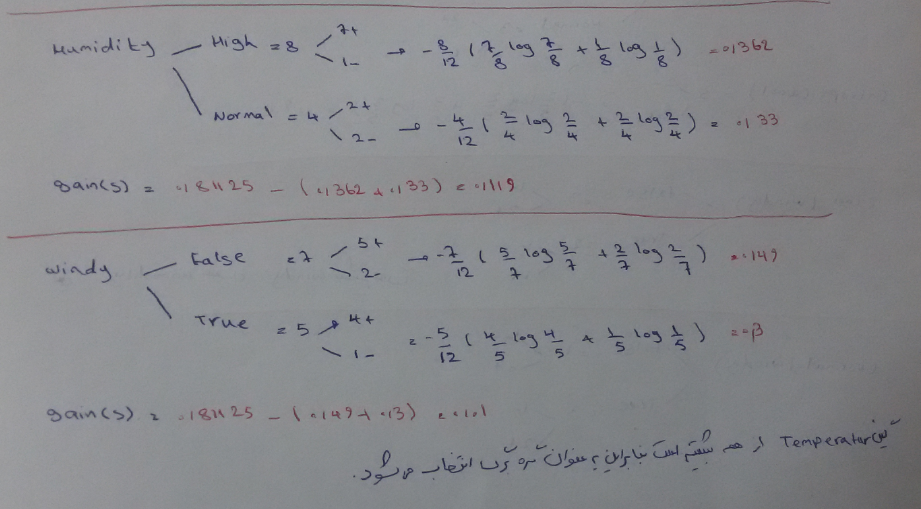 Humidity High = 8 7+ 1- → - 8/12 ( 7/8 log 7/8 + 1/8 log 1/8 ) = 0/362
Normal = 4 2+ 2- → - 4/12 ( 2/4 log 2/4 + 2/4 log 2/4 ) = 0/33
gain(s) = 0/81125 - ( 0/362 + 0/33 ) = 0/119
windy False = 7 5+ 2- → - 7/12 ( 5/7 log 5/7 + 2/7 log 2/7 ) = 0/49
True = 5 4+ 1- = - 5/12 ( 4/5 log 4/5 + 1/5 log 1/5 ) = 0/3
gain(s) = 0/81125 - ( 0/49 + 0/3 ) = 0/01
گین Temperatur از همه بیشتر است بنابراین به عنوان گره انتخاب می شود.